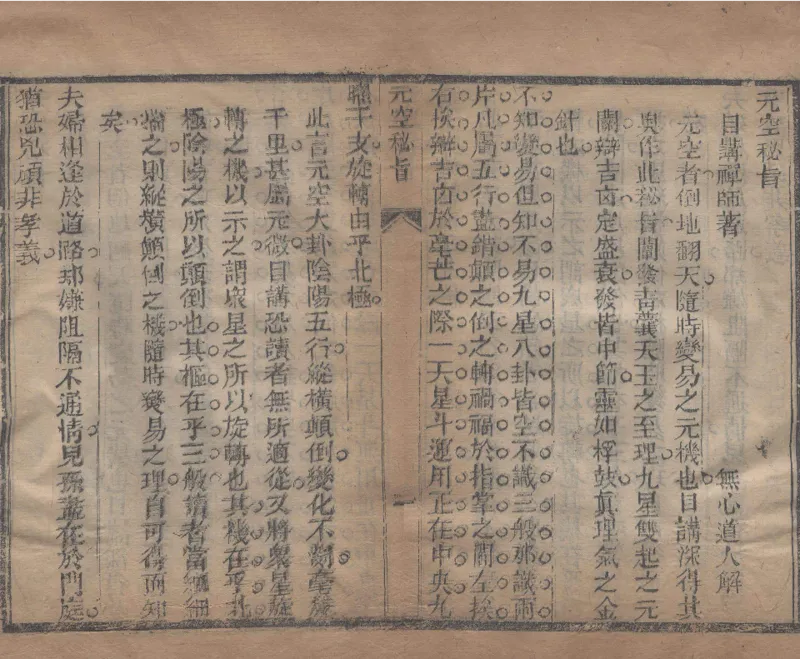 元空秘旨
目講禪師著　無心道人解
元空者倒地翻天隨時變易之元機也目講深得其
奧作此秘旨闡發青囊天玉之至理九星雙起之元
關辯吉凶定盛衰發皆中節靈如桴鼓眞理氣之金
針也
不知變易但知不易九星八卦皆空不識三般那識兩
片凡屬五行盡錯顛之倒之轉禍福於指掌之間左挨
右挨辯吉凶於毫芒之際一天星斗運用正在中央九
元空秘旨
一
曜干支旋轉由乎北極
此言元空大卦陰陽五行縱橫顛倒變化不測毫釐
千里甚屬元微目講恐讀者無所適從又將衆星旋
轉之機以示之謂衆星之所以旋轉也其機在乎北
極陰陽之所以顛倒也其樞在乎三般讀者當細細
揣之則縱橫顛倒之機隨時變易之理自可得而知
矣
夫婦相逢於道路却嫌阻隔不通情兒孫盡在於門庭
猶恐兇頑非孝義